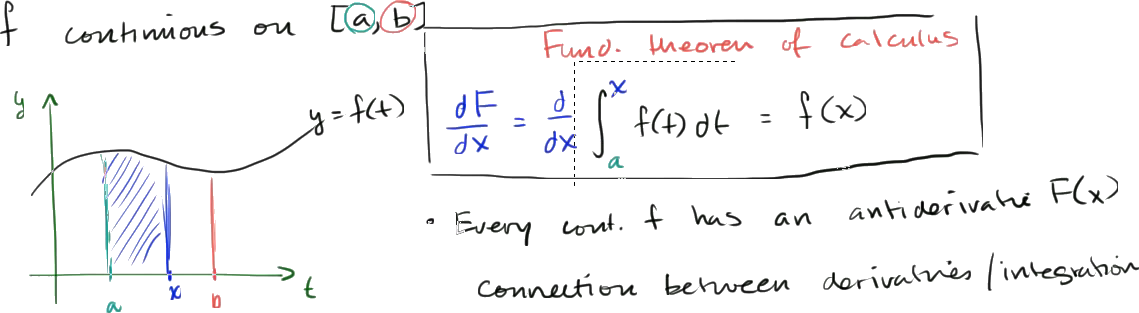 f continuous on [a, b]
Fund. theorem of calculus
y
y = f(t)
dF/dx = d/dx ∫_a^x f(t) dt = f(x)
• Every cont. f has an antiderivative F(x)
connection between derivatives / integration
a x b t